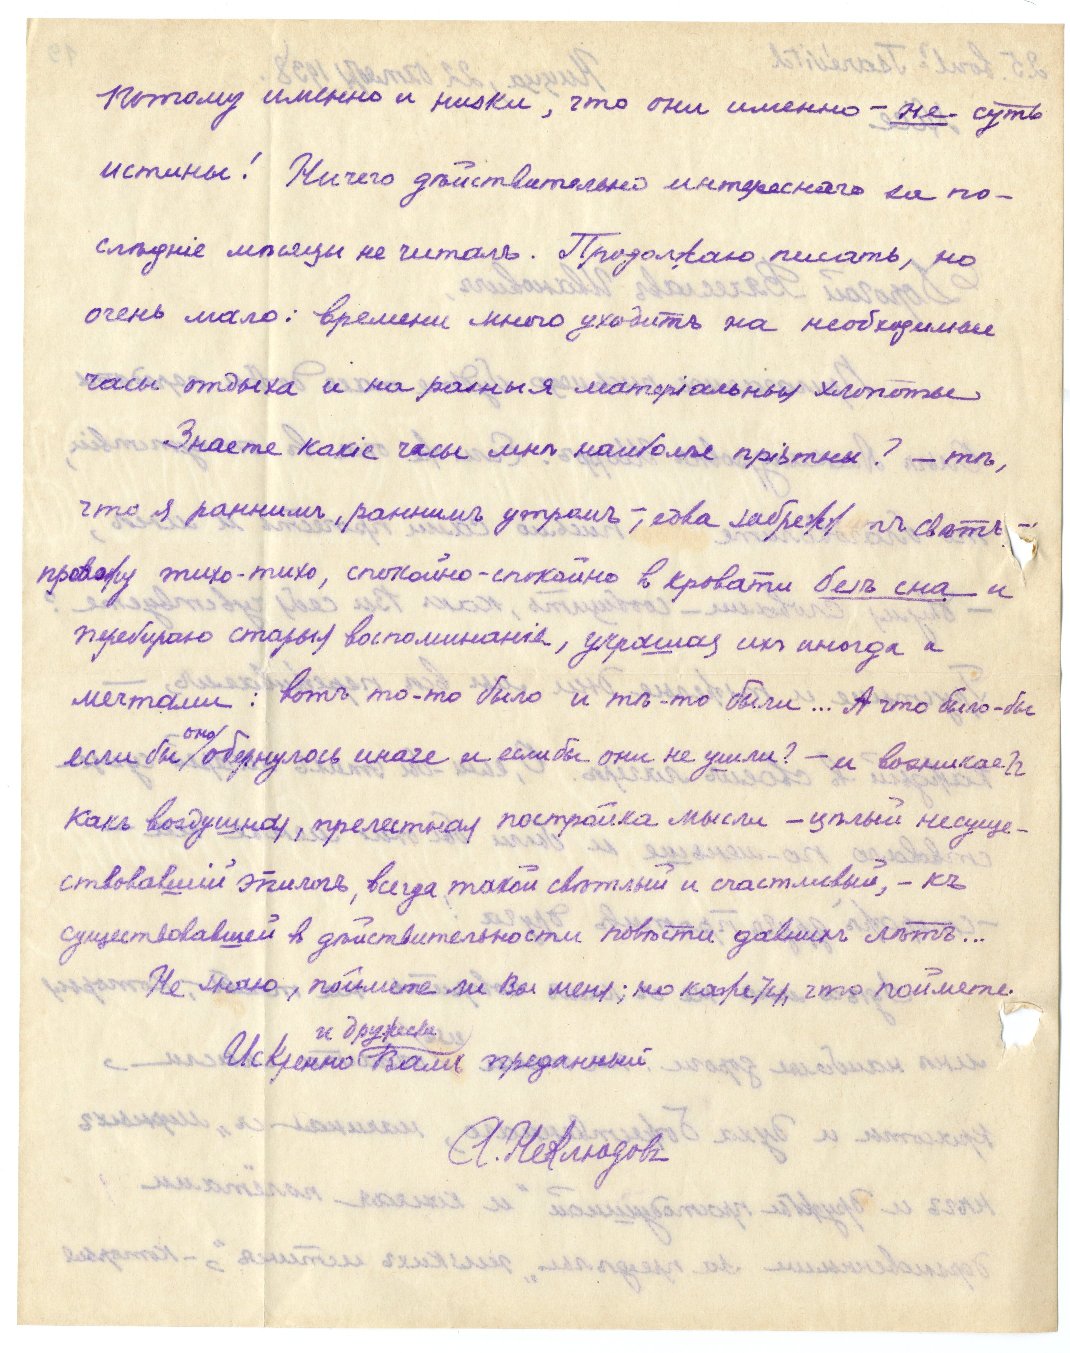 потому именно и низки, что они именно – не – суть
истины! Ничего дѣйствительно интереснаго за по-
слѣднiе мѣсяцы не читалъ. Продолжаю писать, но
очень мало: времени много уходитъ на необходимые
часы отдыха и на разныя матерiальныя хлопоты
Знаете какiе часы мнѣ наиболѣе прiятны? – тѣ,
что я раннимъ, раннимъ утромъ –, едва забрежж тъ свѣтъ –
провожу тихо-тихо, спокойно-спокойно в кровати безъ сна и
перебираю старыя воспоминанiя, украшая ихъ иногда и
мечтами: вотъ то-то было и тѣ-то были... А что было-бы
если бы оно обернулось иначе и еслибы они не ушли? – и возникаетъ
какъ воздушная, прелестная постройка мысли – цѣлый несуще-
ствовавшiй эпилогъ, всегда такой свѣтлый и счастливый, – къ
существовавшей в дѣйствительности повѣсти давнихъ лѣтъ...
Не знаю, поймете ли Вы меня; но кажется, что поймете.
и дружески
Искренно Вамъ преданный
А. Неклюдовъ